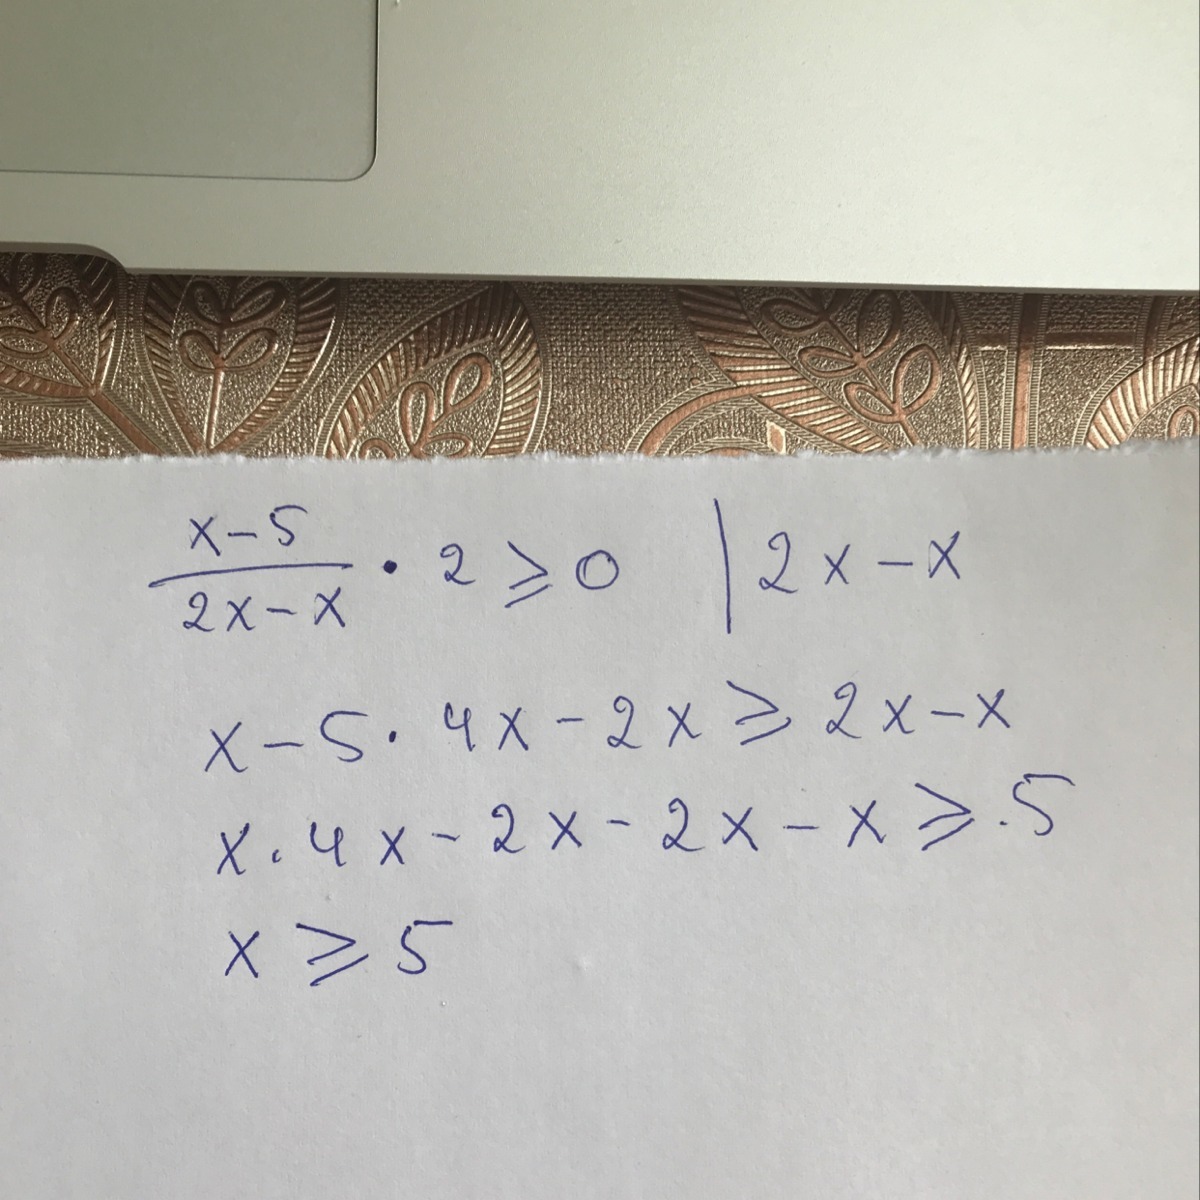 x-5/2x-x · 2 ⩾ 0 | 2x-x
x-5 · 4x-2x ⩾ 2x-x
x · 4x-2x-2x-x ⩾ .5
x ⩾ 5